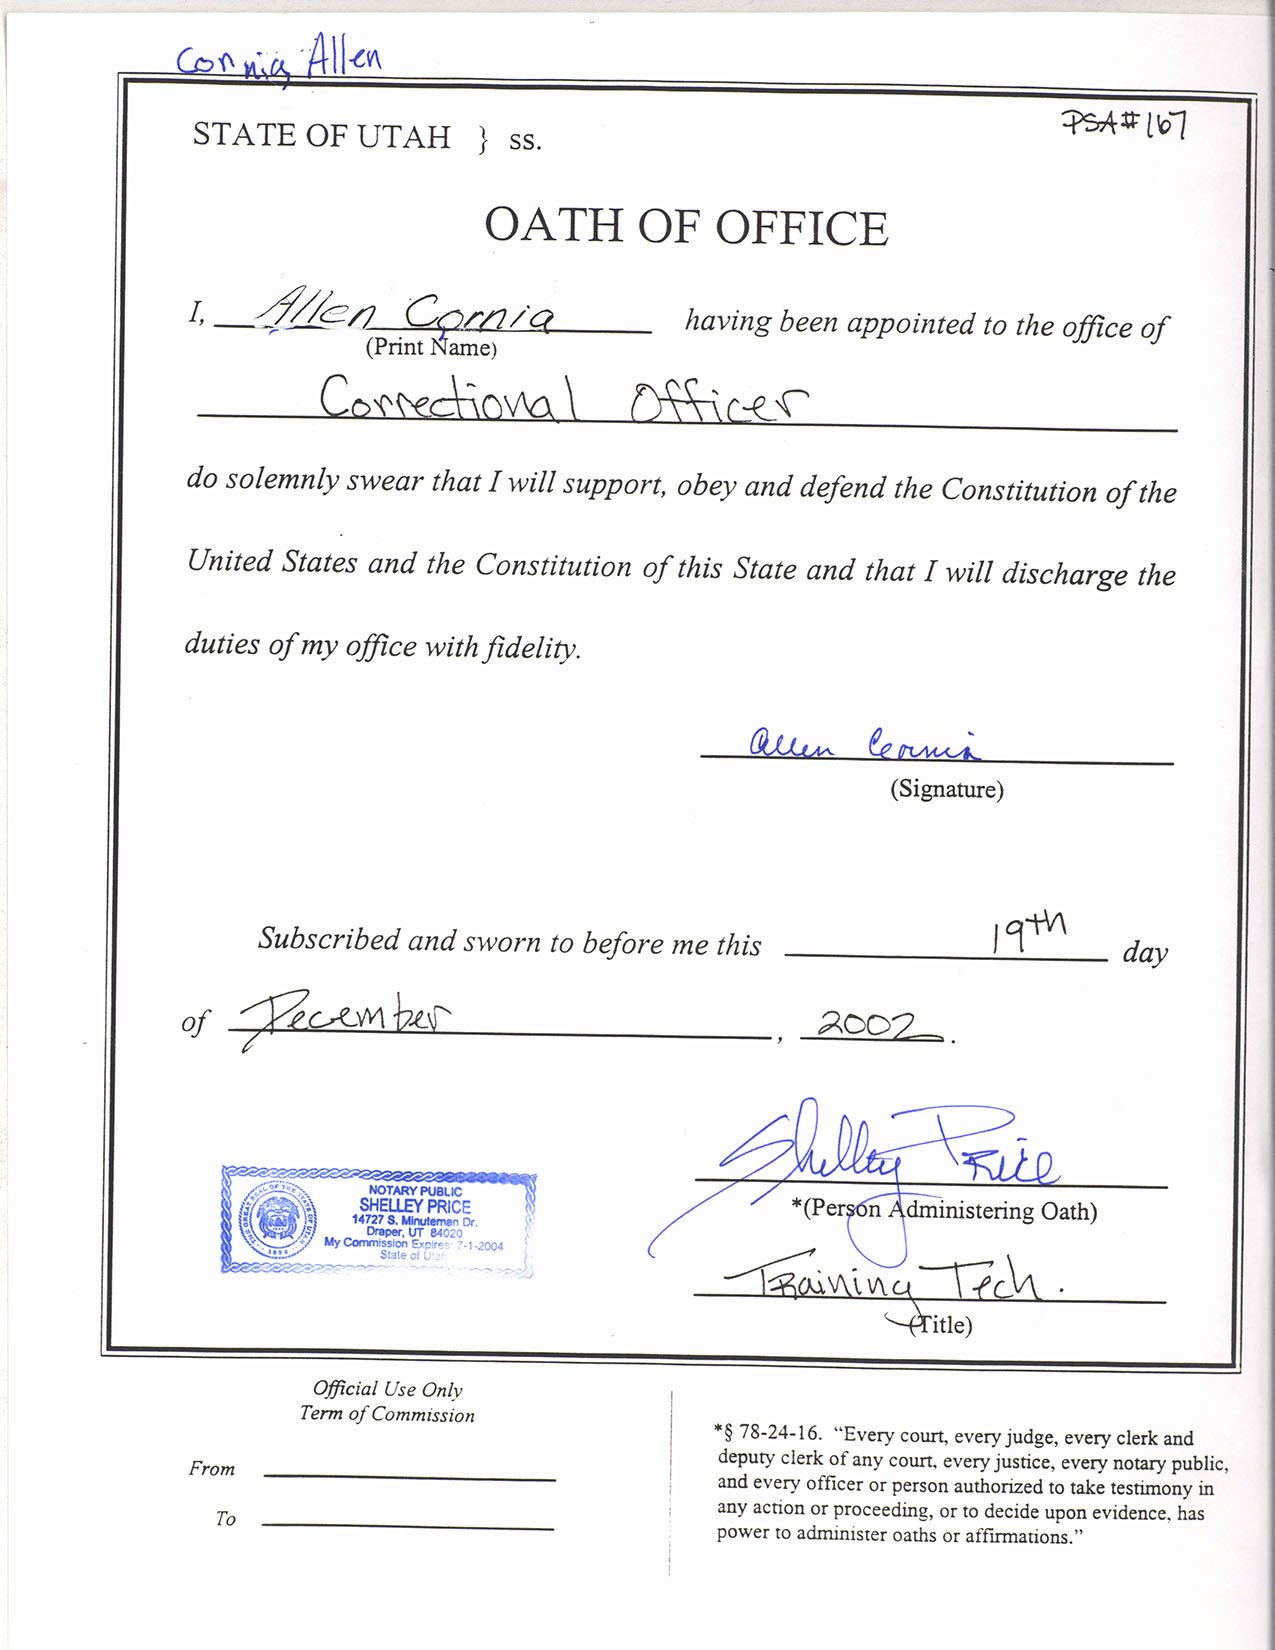 Cornia, Allen
STATE OF UTAH } ss.
PSA#167
OATH OF OFFICE
I, Allen Cornia having been appointed to the office of
(Print Name)
Correctional Officer
do solemnly swear that I will support, obey and defend the Constitution of the
United States and the Constitution of this State and that I will discharge the
duties of my office with fidelity.
Allen Cornia
(Signature)
Subscribed and sworn to before me this 19th day
of December, 2002.
Shelley Price
*(Person Administering Oath)
Training Tech.
(Title)
THE GREAT SEAL OF THE STATE OF UTAH
1896
NOTARY PUBLIC
SHELLEY PRICE
14727 S. Minuteman Dr.
Draper, UT 84020
My Commission Expires: 7-1-2004
State of Utah
Official Use Only
Term of Commission
From
To
*§ 78-24-16. “Every court, every judge, every clerk and
deputy clerk of any court, every justice, every notary public,
and every officer or person authorized to take testimony in
any action or proceeding, or to decide upon evidence, has
power to administer oaths or affirmations.”